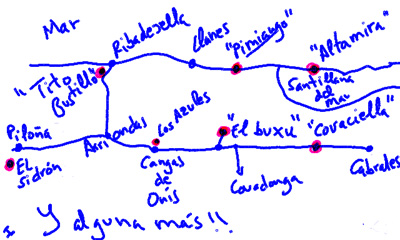 Mar
Ribadesella
Llanes
"Pimiango"
"Altamira"
"Tito
Bustillo"
Santillana
del
Mar
Piloña
Arriondas
Los Azules
"El buxu"
"Covaciella"
El
Sidrón
Cangas
de
Onis
Covadonga
Cabrales
Y alguna más!!